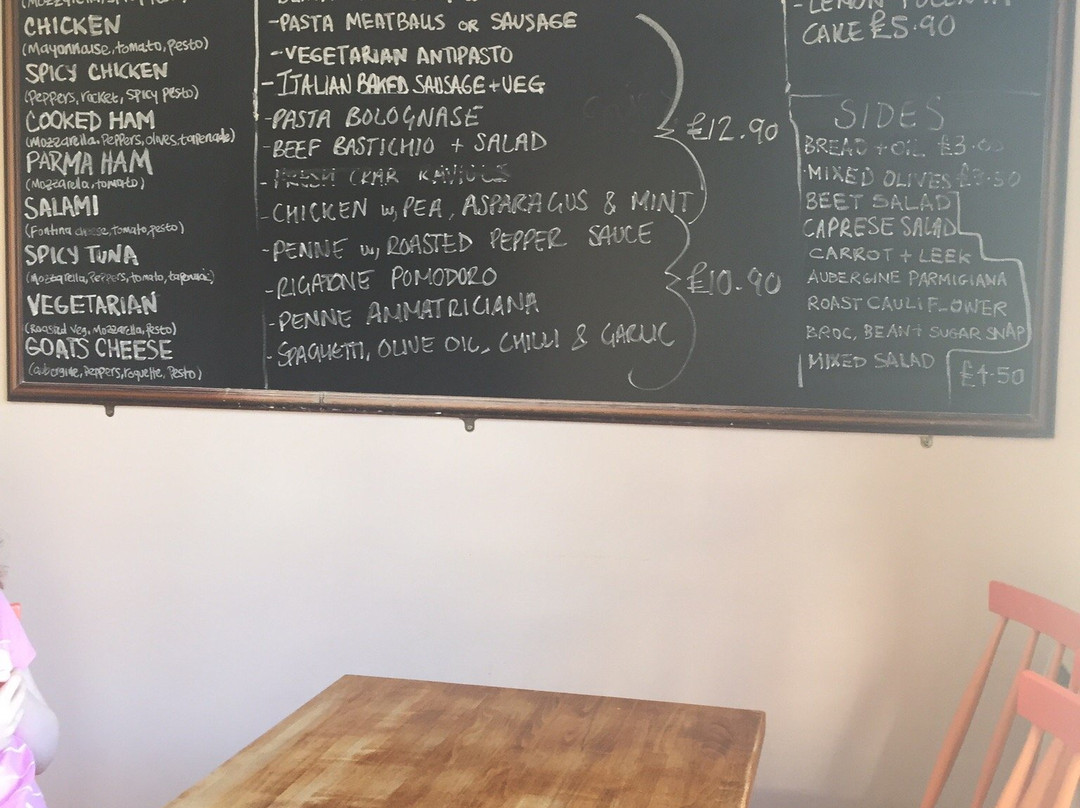 CHICKEN
(Mayonnaise, tomato, pesto)
SPICY CHICKEN
(Peppers, rocket, spicy pesto)
COOKED HAM
(Mozzarella, Peppers, olives, tapenade)
PARMA HAM
(Mozzarella, tomato)
SALAMI
(Fontina cheese, tomato, pesto)
SPICY TUNA
(Mozzarella, Peppers, tomato, tapenade)
VEGETARIAN
(Roasted veg, Mozzarella, Pesto)
GOATS CHEESE
(aubergine, Peppers, roquette, Pesto)
- PASTA MEATBALLS OR SAUSAGE
- VEGETARIAN ANTIPASTO
- ITALIAN BAKED SAUSAGE + VEG
- PASTA BOLOGNASE
- BEEF BASTICHIO + SALAD
£12.90
- CHICKEN w, PEA, ASPARAGUS & MINT
- PENNE w, ROASTED PEPPER SAUCE
- RIGATONE POMODORO
- PENNE AMMATRICIANA
- SPAGHETTI, OLIVE OIL, CHILLI & GARLIC
£10.90
- LEMON POLENTA
CAKE £5.90
SIDES
BREAD + OIL £3.00
MIXED OLIVES £3.50
BEET SALAD
CAPRESE SALAD
CARROT + LEEK
AUBERGINE PARMIGIANA
ROAST CAULIFLOWER
BROC, BEAN + SUGAR SNAP
MIXED SALAD
£4.50